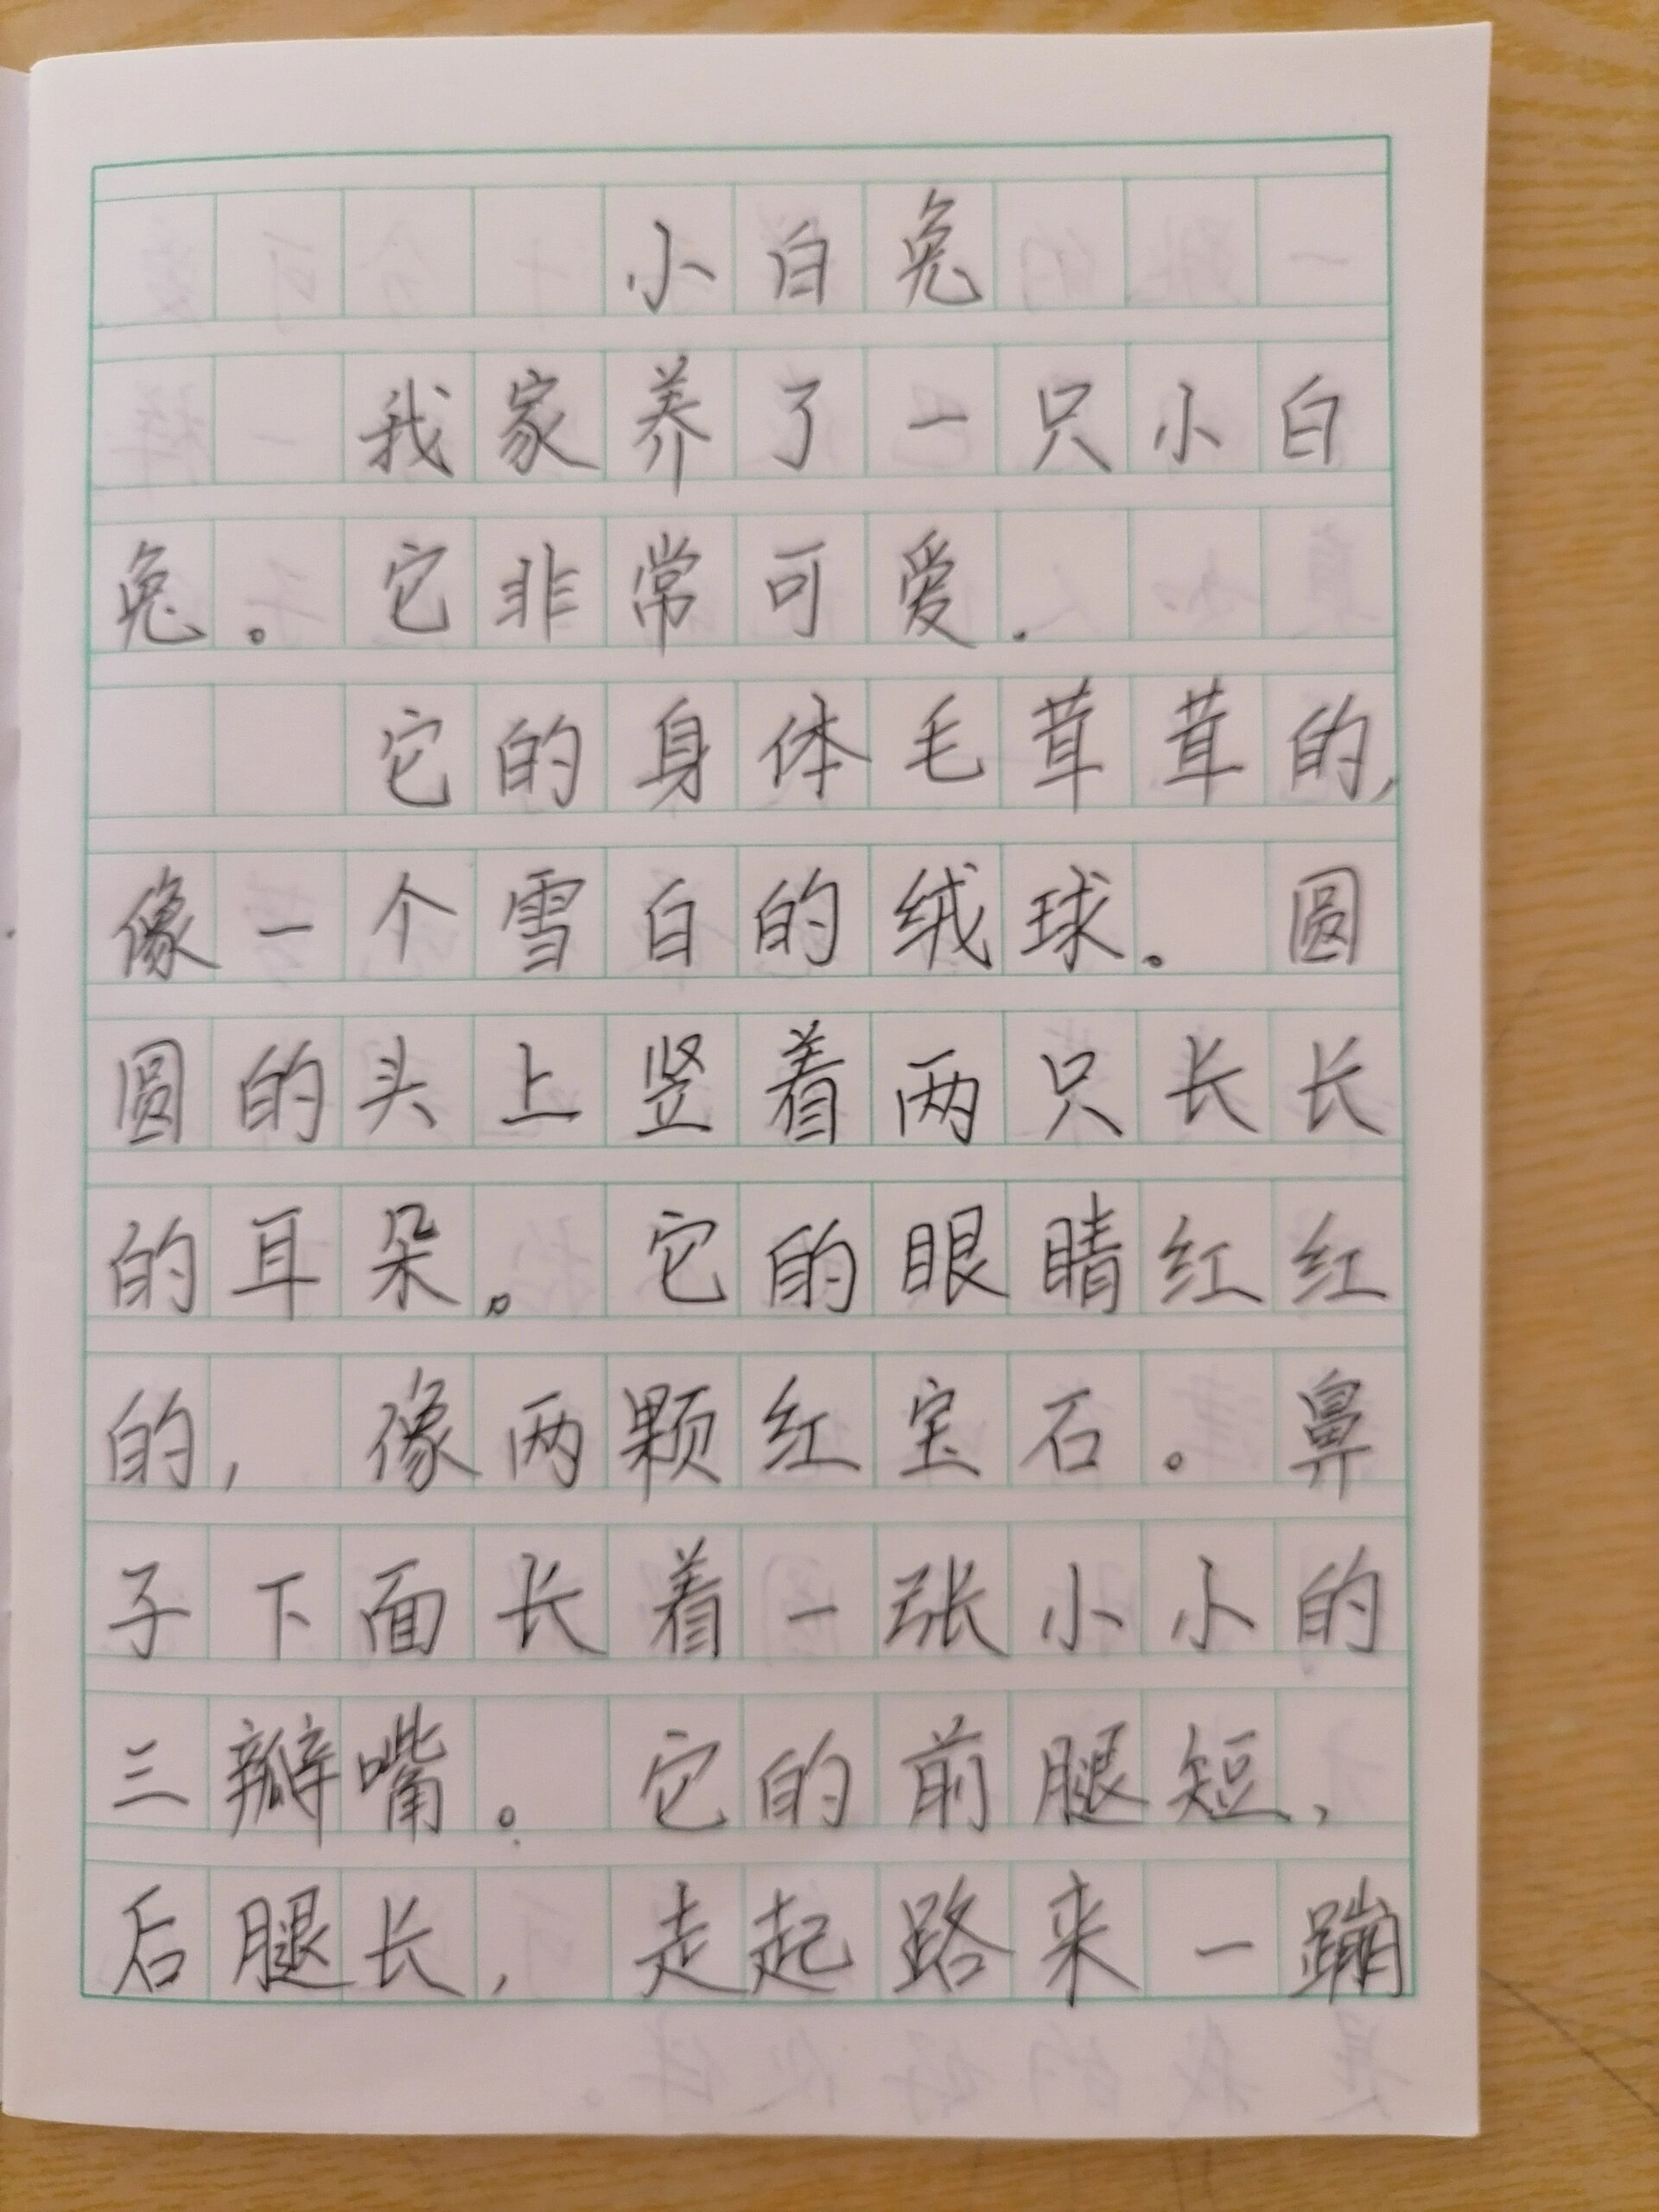 小白兔
我家养了一只小白
兔。它非常可爱.
它的身体毛茸茸的,
像一个雪白的绒球。圆
圆的头上竖着两只长长
的耳朵。它的眼睛红红
的,像两颗红宝石。鼻
子下面长着一张小小的
三瓣嘴。它的前腿短,
后腿长,走起路来一蹦